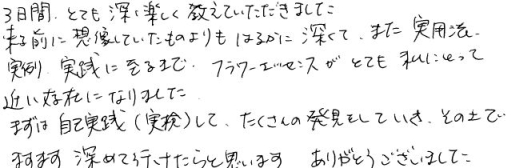 3日間、とても深く楽しく教えていただきました
来る前に想像していたものよりもはるかに深くて、また実用法、
実例、実践に至るまで、フラワーエッセンスがとても私にとって
近い存在になりました
まずは自己実践（実検）して、たくさんの発見をしていき、その上で
ますます深めて行けたらと思います　ありがとうございました